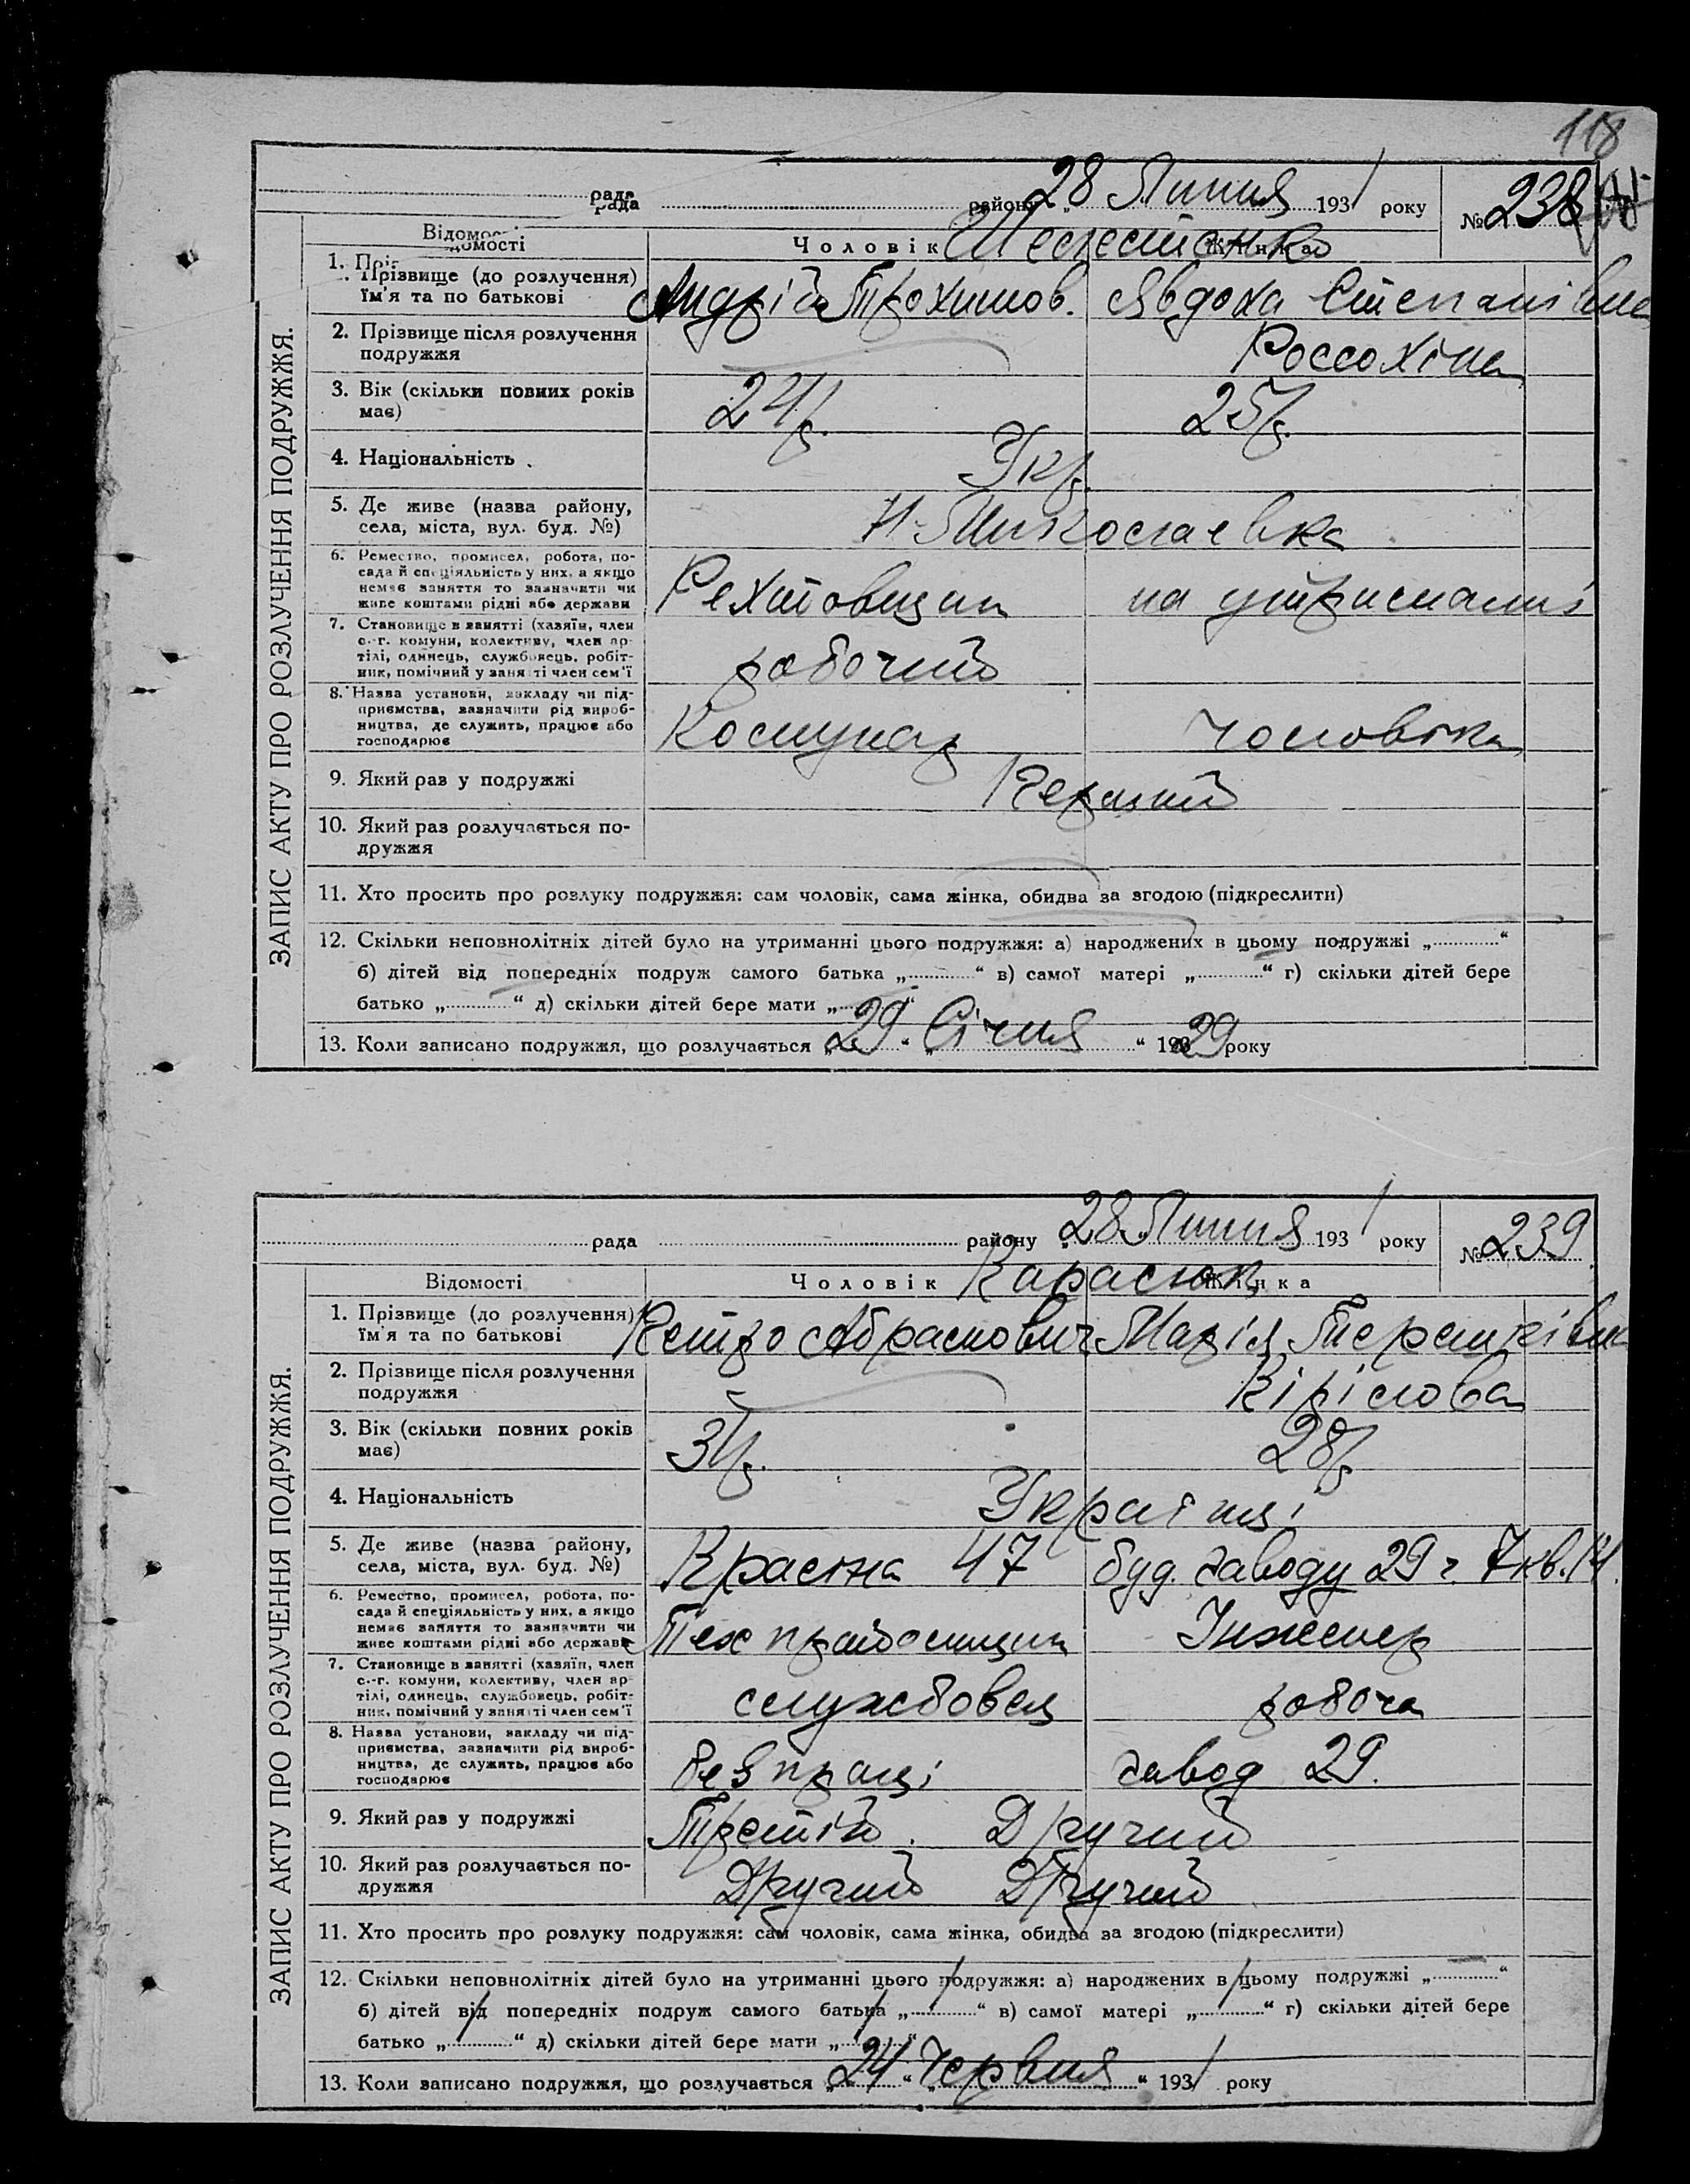 118
рада району „28 Липня 1931 року № 238
Відомості Чоловік Жінка
Шелестенко
1. Прізвище (до розлучення) Андрій Трохимов. Явдоха Степанівна
ім'я та по батькові
2. Прізвище після розлучення Россохіна
подружжя
3. Вік (скільки повних років 24 р. 25 р.
має)
4. Національність Укр.
5. Де живе (назва району, Н-Миколаевка
села, міста, вул. буд. №)
6. Ремество, промисел, робота, по-
сада й спеціяльність у них, а якщо
немає заняття то зазначити чи на утриманні
живе коштами рідні або держави
7. Становище в занятті (хазяїн, член
с.-г. комуни, колективу, член ар-
тілі, одинець, службовець, робіт- робочий
ник, помічний у занятті член сем'ї
8. Назва установи, закладу чи під-
приємства, зазначити рід вироб-
ництва, де служить, працює або Комунар чоловіка
господарює
9. Який раз у подружжі Перший
10. Який раз розлучається по-
дружжя
11. Хто просить про розлуку подружжя: сам чоловік, сама жінка, обидва за згодою (підкреслити)
12. Скільки неповнолітніх дітей було на утриманні цього подружжя: а) народжених в цьому подружжі „ “
б) дітей від попередніх подруж самого батька „ “ в) самої матері „ “ г) скільки дітей бере
батько „ “ д) скільки дітей бере мати „ “
13. Коли записано подружжя, що розлучається „29“ „Січня“ 1929 року
ЗАПИС АКТУ ПРО РОЗЛУЧЕННЯ ПОДРУЖЖЯ.
рада району „28 Липня 1931 року № 239
Відомості Чоловік Жінка
Карасюк
1. Прізвище (до розлучення) Петро Абрамович Марія Терешківна
ім'я та по батькові
2. Прізвище після розлучення Кірілова
подружжя
3. Вік (скільки повних років 31 р. 28 р.
має)
4. Національність Українці
5. Де живе (назва району, Красна 47 буд. заводу 29 г. 7 кв. 14.
села, міста, вул. буд. №)
6. Ремество, промисел, робота, по-
сада й спеціяльність у них, а якщо
немає заняття то зазначити чи Інженер
живе коштами рідні або держави
7. Становище в занятті (хазяїн, член
с.-г. комуни, колективу, член ар-
тілі, одинець, службовець, робіт- службовец робоча
ник, помічний у занятті член сем'ї
8. Назва установи, закладу чи під-
приємства, зазначити рід вироб-
ництва, де служить, працює або без праці завод 29.
господарює
9. Який раз у подружжі Третій. Другий
10. Який раз розлучається по- Другий Другий
дружжя
11. Хто просить про розлуку подружжя: сам чоловік, сама жінка, обидва за згодою (підкреслити)
12. Скільки неповнолітніх дітей було на утриманні цього подружжя: а) народжених в цьому подружжі „ “
б) дітей від попередніх подруж самого батька „ “ в) самої матері „ “ г) скільки дітей бере
батько „ “ д) скільки дітей бере мати „ “
13. Коли записано подружжя, що розлучається „24“ „Червня“ 1931 року
ЗАПИС АКТУ ПРО РОЗЛУЧЕННЯ ПОДРУЖЖЯ.